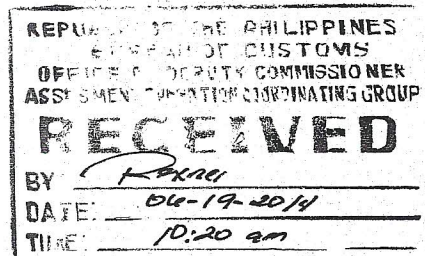 REPUBLIC OF THE PHILIPPINES
BUREAU OF CUSTOMS
OFFICE OF DEPUTY COMMISSIONER
ASSESSMENT OPERATION COORDINATING GROUP
RECEIVED
BY
DATE: 06-19-2014
TIME: 10:20 am